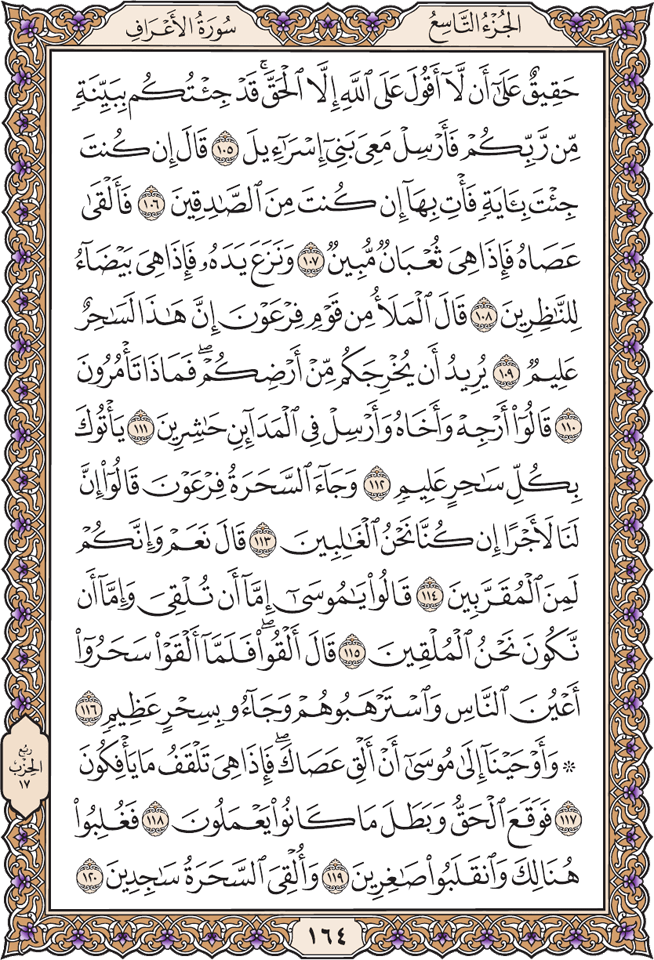 الجُزْءُ التَّاسِعُ
سُورَةُ الأَعْرَافِ
حَقِيقٌ عَلَىٰٓ أَن لَّآ أَقُولَ عَلَى ٱللَّهِ إِلَّا ٱلْحَقَّۚ قَدْ جِئْتُكُم بِبَيِّنَةٍ
مِّن رَّبِّكُمْ فَأَرْسِلْ مَعِىَ بَنِىٓ إِسْرَٰٓءِيلَ ١٠٥ قَالَ إِن كُنتَ
جِئْتَ بِـَٔايَةٍ فَأْتِ بِهَآ إِن كُنتَ مِنَ ٱلصَّـٰدِقِينَ ١٠٦ فَأَلْقَىٰ
عَصَاهُ فَإِذَا هِىَ ثُعْبَانٌ مُّبِينٌ ١٠٧ وَنَزَعَ يَدَهُۥ فَإِذَا هِىَ بَيْضَآءُ
لِلنَّـٰظِرِينَ ١٠٨ قَالَ ٱلْمَلَأُ مِن قَوْمِ فِرْعَوْنَ إِنَّ هَـٰذَا لَسَـٰحِرٌ
عَلِيمٌ ١٠٩ يُرِيدُ أَن يُخْرِجَكُم مِّنْ أَرْضِكُمْۖ فَمَاذَا تَأْمُرُونَ
١١٠ قَالُوٓا۟ أَرْجِهْ وَأَخَاهُ وَأَرْسِلْ فِى ٱلْمَدَآئِنِ حَـٰشِرِينَ ١١١ يَأْتُوكَ
بِكُلِّ سَـٰحِرٍ عَلِيمٍ ١١٢ وَجَآءَ ٱلسَّحَرَةُ فِرْعَوْنَ قَالُوٓا۟ إِنَّ
لَنَا لَأَجْرًا إِن كُنَّا نَحْنُ ٱلْغَـٰلِبِينَ ١١٣ قَالَ نَعَمْ وَإِنَّكُمْ
لَمِنَ ٱلْمُقَرَّبِينَ ١١٤ قَالُوا۟ يَـٰمُوسَىٰٓ إِمَّآ أَن تُلْقِىَ وَإِمَّآ أَن
نَّكُونَ نَحْنُ ٱلْمُلْقِينَ ١١٥ قَالَ أَلْقُوا۟ۖ فَلَمَّآ أَلْقَوْا۟ سَحَرُوٓا۟
أَعْيُنَ ٱلنَّاسِ وَٱسْتَرْهَبُوهُمْ وَجَآءُو بِسِحْرٍ عَظِيمٍ ١١٦
۞ وَأَوْحَيْنَآ إِلَىٰ مُوسَىٰٓ أَنْ أَلْقِ عَصَاكَۖ فَإِذَا هِىَ تَلْقَفُ مَا يَأْفِكُونَ
١١٧ فَوَقَعَ ٱلْحَقُّ وَبَطَلَ مَا كَانُوا۟ يَعْمَلُونَ ١١٨ فَغُلِبُوا۟
هُنَالِكَ وَٱنقَلَبُوا۟ صَـٰغِرِينَ ١١٩ وَأُلْقِىَ ٱلسَّحَرَةُ سَـٰجِدِينَ ١٢٠
رُبع
الحِزْب
١٧
١٦٤